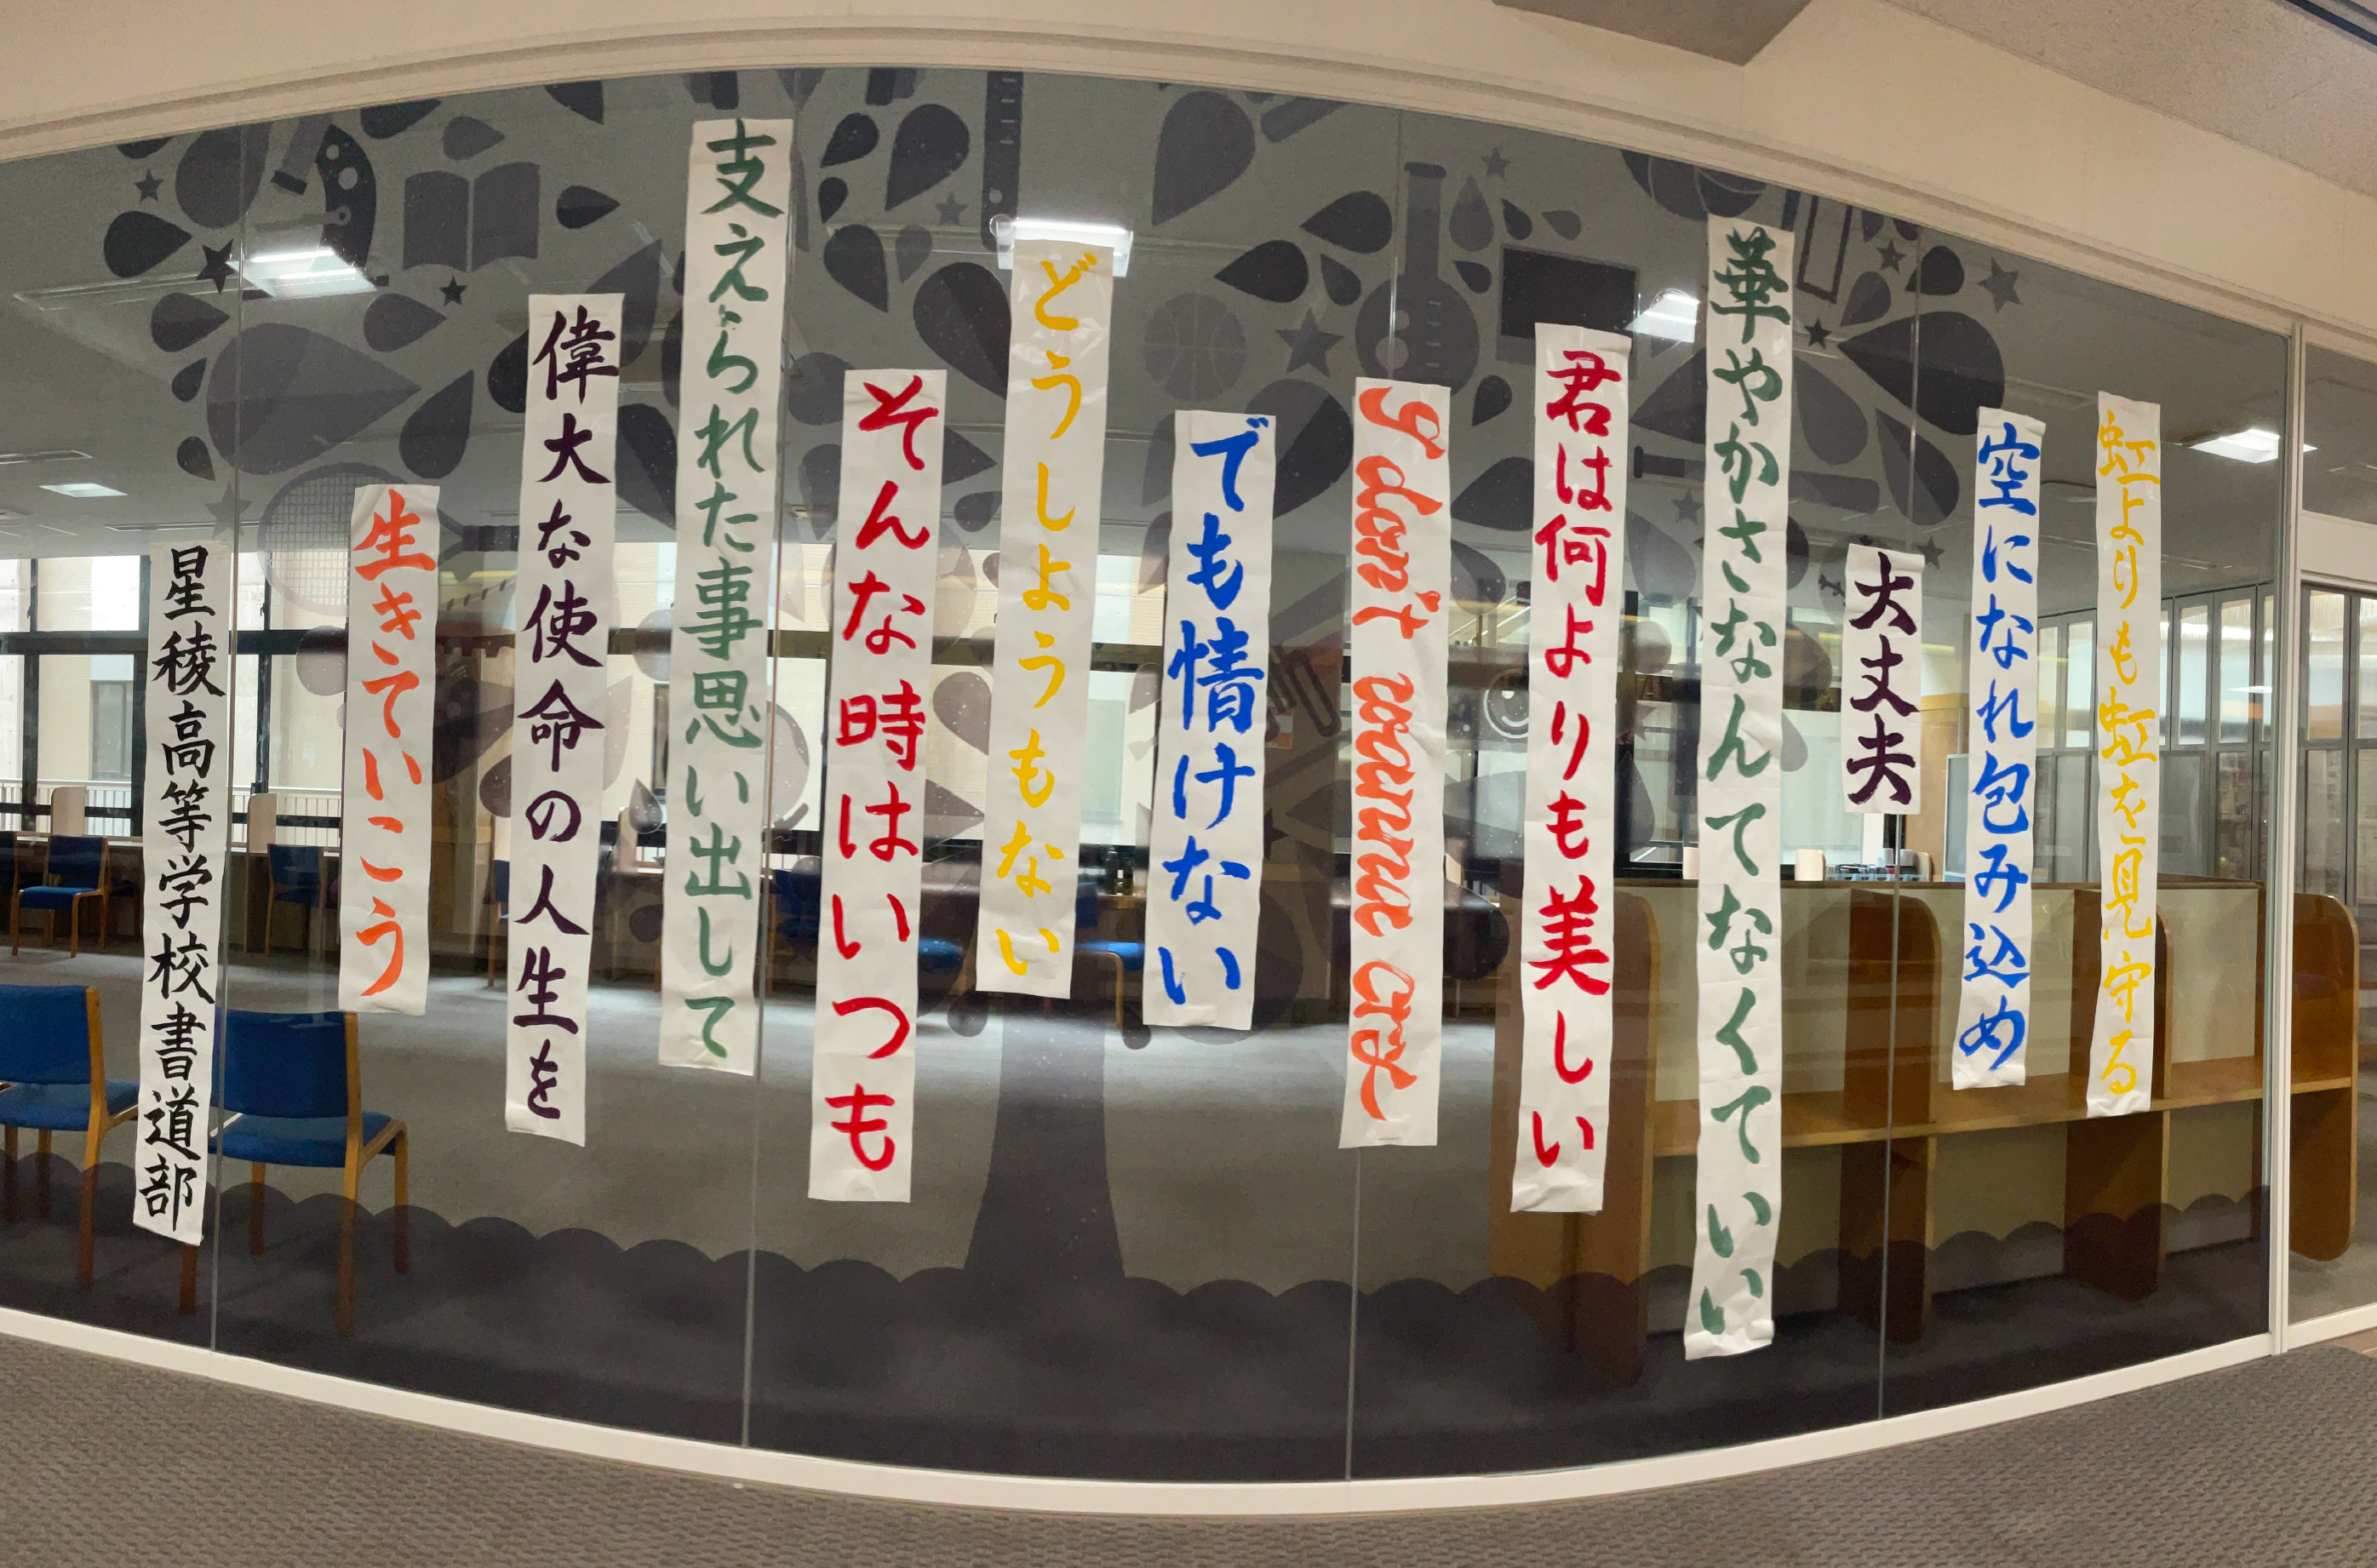 虹よりも虹を見守る
空になれ包み込め
大丈夫
華やかさなんてなくていい
君は何よりも美しい
I don't wanna cry
でも情けない
どうしようもない
そんな時はいつも
支えられた事思い出して
偉大な使命の人生を
生きていこう
星稜高等学校書道部